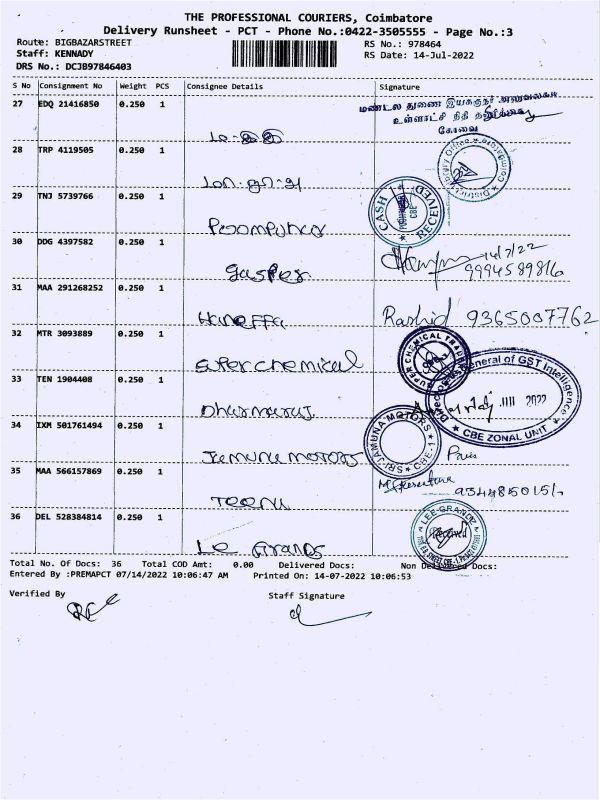 THE PROFESSIONAL COURIERS, Coimbatore
Delivery Runsheet - PCT - Phone No.:0422-3505555 - Page No.:3
Route: BIGBAZARSTREET
RS No.: 978464
Staff: KENNADY
RS Date: 14-Jul-2022
DRS No.: DCJB97846403
S No Consignment No Weight PCS Consignee Details Signature
27 EDQ 21416850 0.250 1
மண்டல துணை இயக்குநர் அலுவலகம்
உள்ளாட்சி நிதி தணிக்கை
கோவை
28 TRP 4119505 0.250 1
29 TNJ 5739766 0.250 1 Poompuhar
CASH RECEIVED
CBE
30 DDG 4397582 0.250 1
14/7/22
31 MAA 291268252 0.250 1 Haneffa Rashid 9365007762
32 MTR 3093889 0.250 1 Super chemical
SUPER CHEMICAL
33 TEN 1904408 0.250 1 Dharmaraj
General of GST Intelligence
CBE ZONAL UNIT
34 IXM 501761494 0.250 1 Jamuna motors
SRI JAMUNA MOTORS CBE-1
35 MAA 566157869 0.250 1
36 DEL 528384814 0.250 1 Le Grands
LEE-GRANDZ
Received
Total No. Of Docs: 36 Total COD Amt: 0.00 Delivered Docs: Non Delivered Docs:
Entered By :PREMAPCT 07/14/2022 10:06:47 AM Printed On: 14-07-2022 10:06:53
Verified By Staff Signature